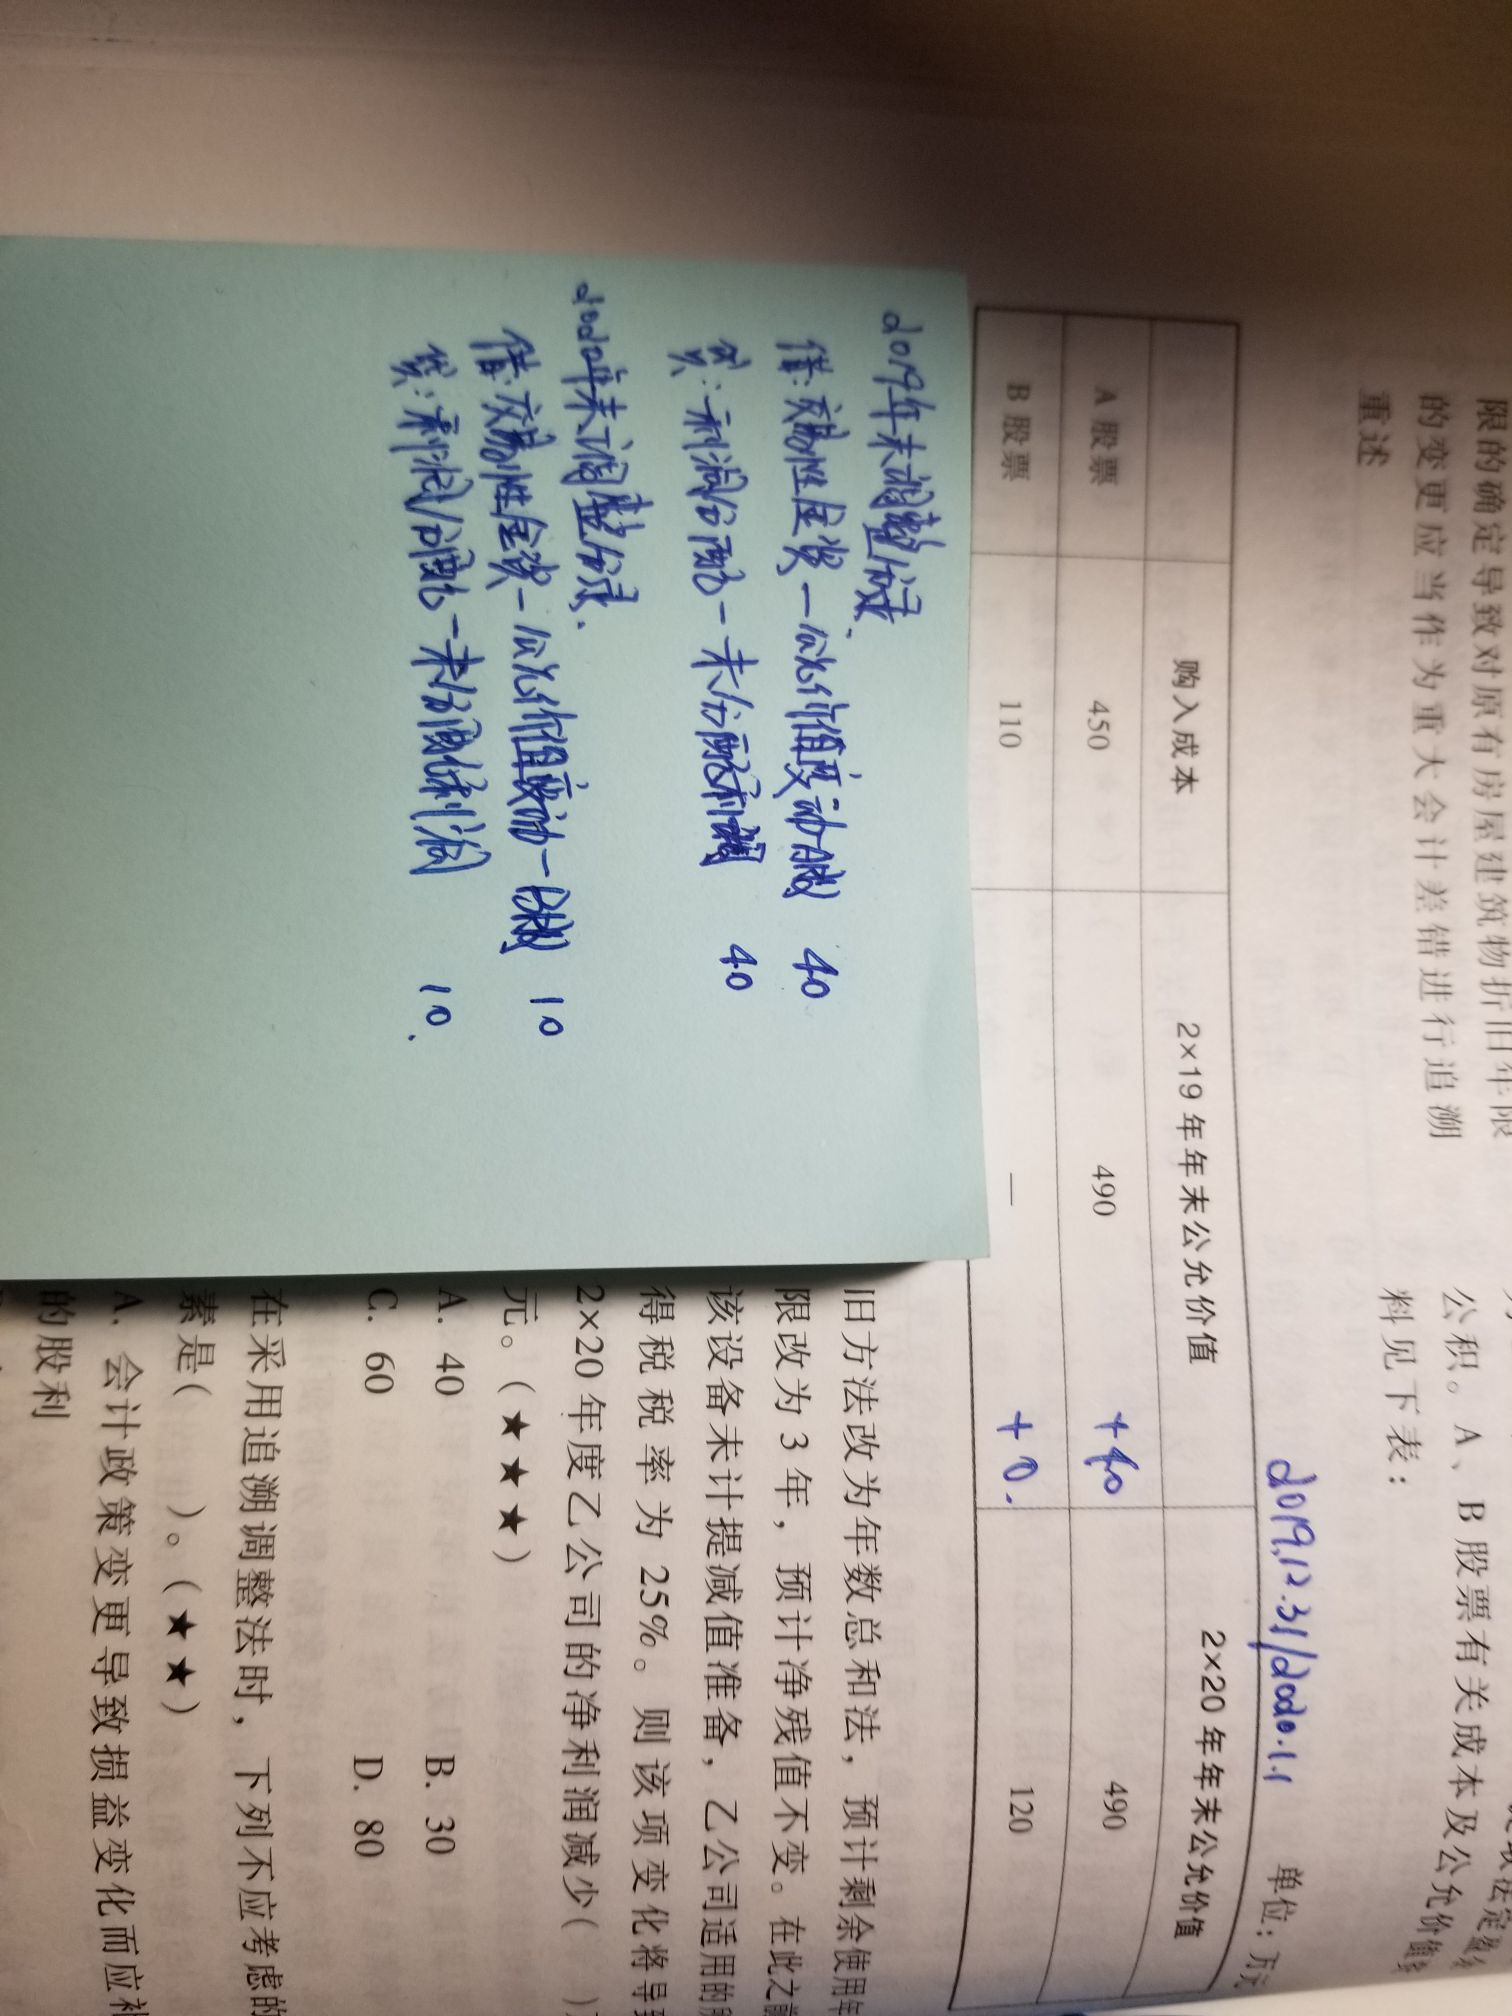 限的确定导致对原有房屋建筑物折旧年限
的变更应当作为重大会计差错进行追溯
重述
公积。A、B 股票有关成本及公允价值
料见下表：
2019.12.31/2020.1.1
单位：万元
购入成本 2×19 年年末公允价值 2×20 年年末公允价值
A 股票 450 490 +40 490
B 股票 110 — +0. 120
2019年末调整分录.
借：交易性金资—公允价值变动—A股 40
贷：利润分配—未分配利润 40
2020年末调整分录.
借：交易性金资—公允价值变动—B股 10
贷：利润分配—未分配利润 10.
旧方法改为年数总和法，预计剩余使用年
限改为 3 年，预计净残值不变。在此之前
该设备未计提减值准备，乙公司适用的所
得税税率为 25%。则该项变化将导致
2×20 年度乙公司的净利润减少（ ）
元。（★★★）
A. 40 B. 30
C. 60 D. 80
在采用追溯调整法时，下列不应考虑的
素是（ ）。（★★）
A. 会计政策变更导致损益变化而应补
的股利